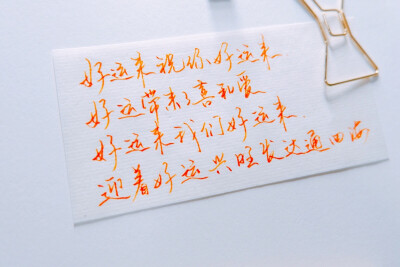 好运来祝你好运来
好运带来了喜和爱
好运来我们好运来
迎着好运兴旺发达通四海